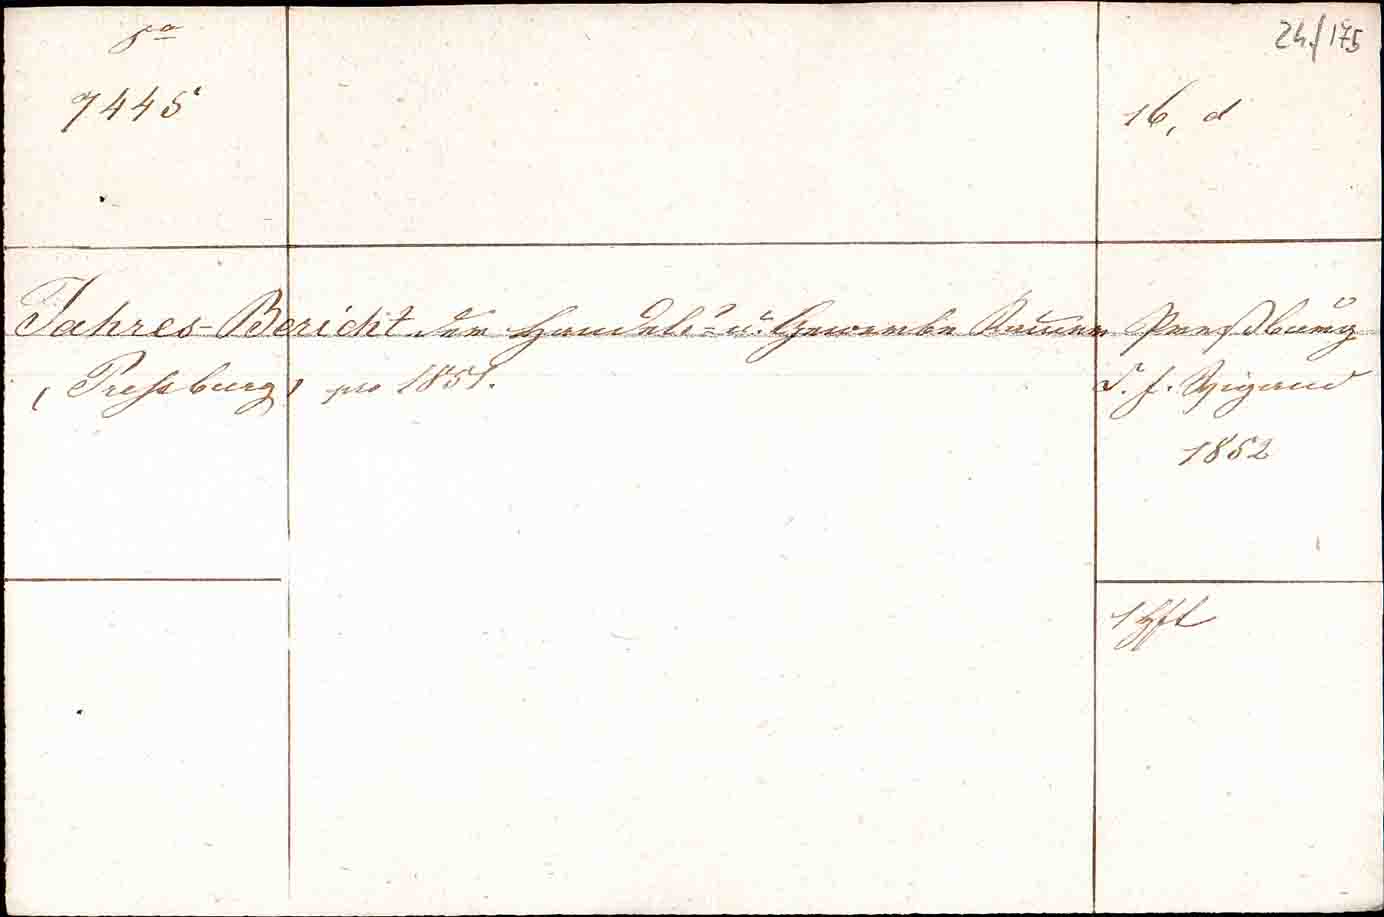 8º
7445
24/175
16, d
Jahres-Bericht der Handels- u. Gewerbe Kammer
(Pressburg) pro 1851.
Preßburg
C. F. Wigand
1852
1 Hft